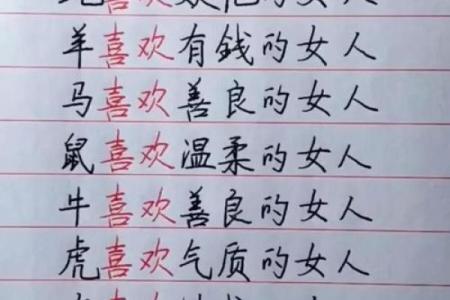 喜欢的女人
羊喜欢有钱的女人
马喜欢善良的女人
鼠喜欢温柔的女人
牛喜欢善良的女人
虎喜欢气质的女人